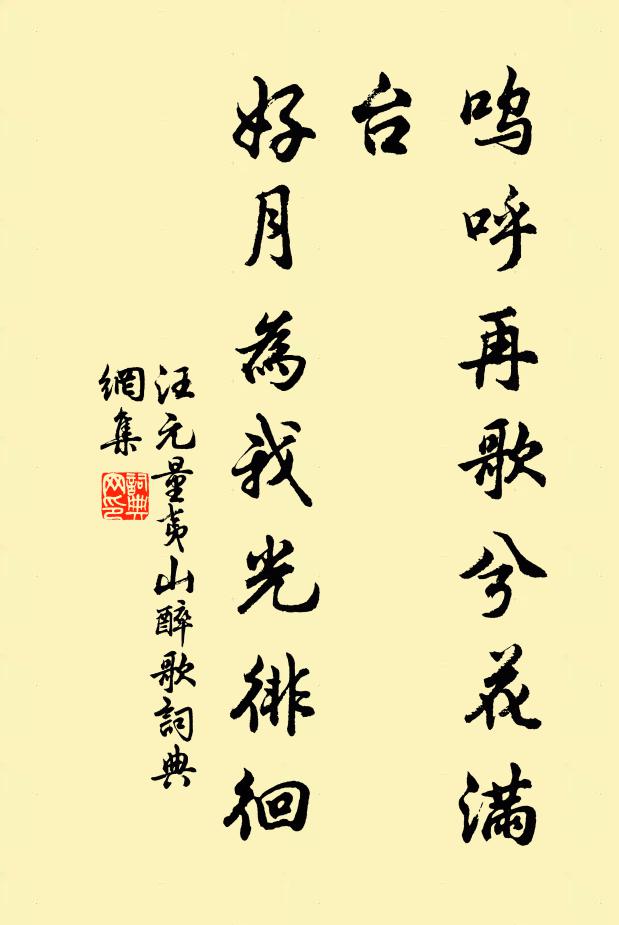 呜呼再歌兮花满
台
好月為我光徘徊
汪元量夷山醉歌詞典
網集
詞典
网印